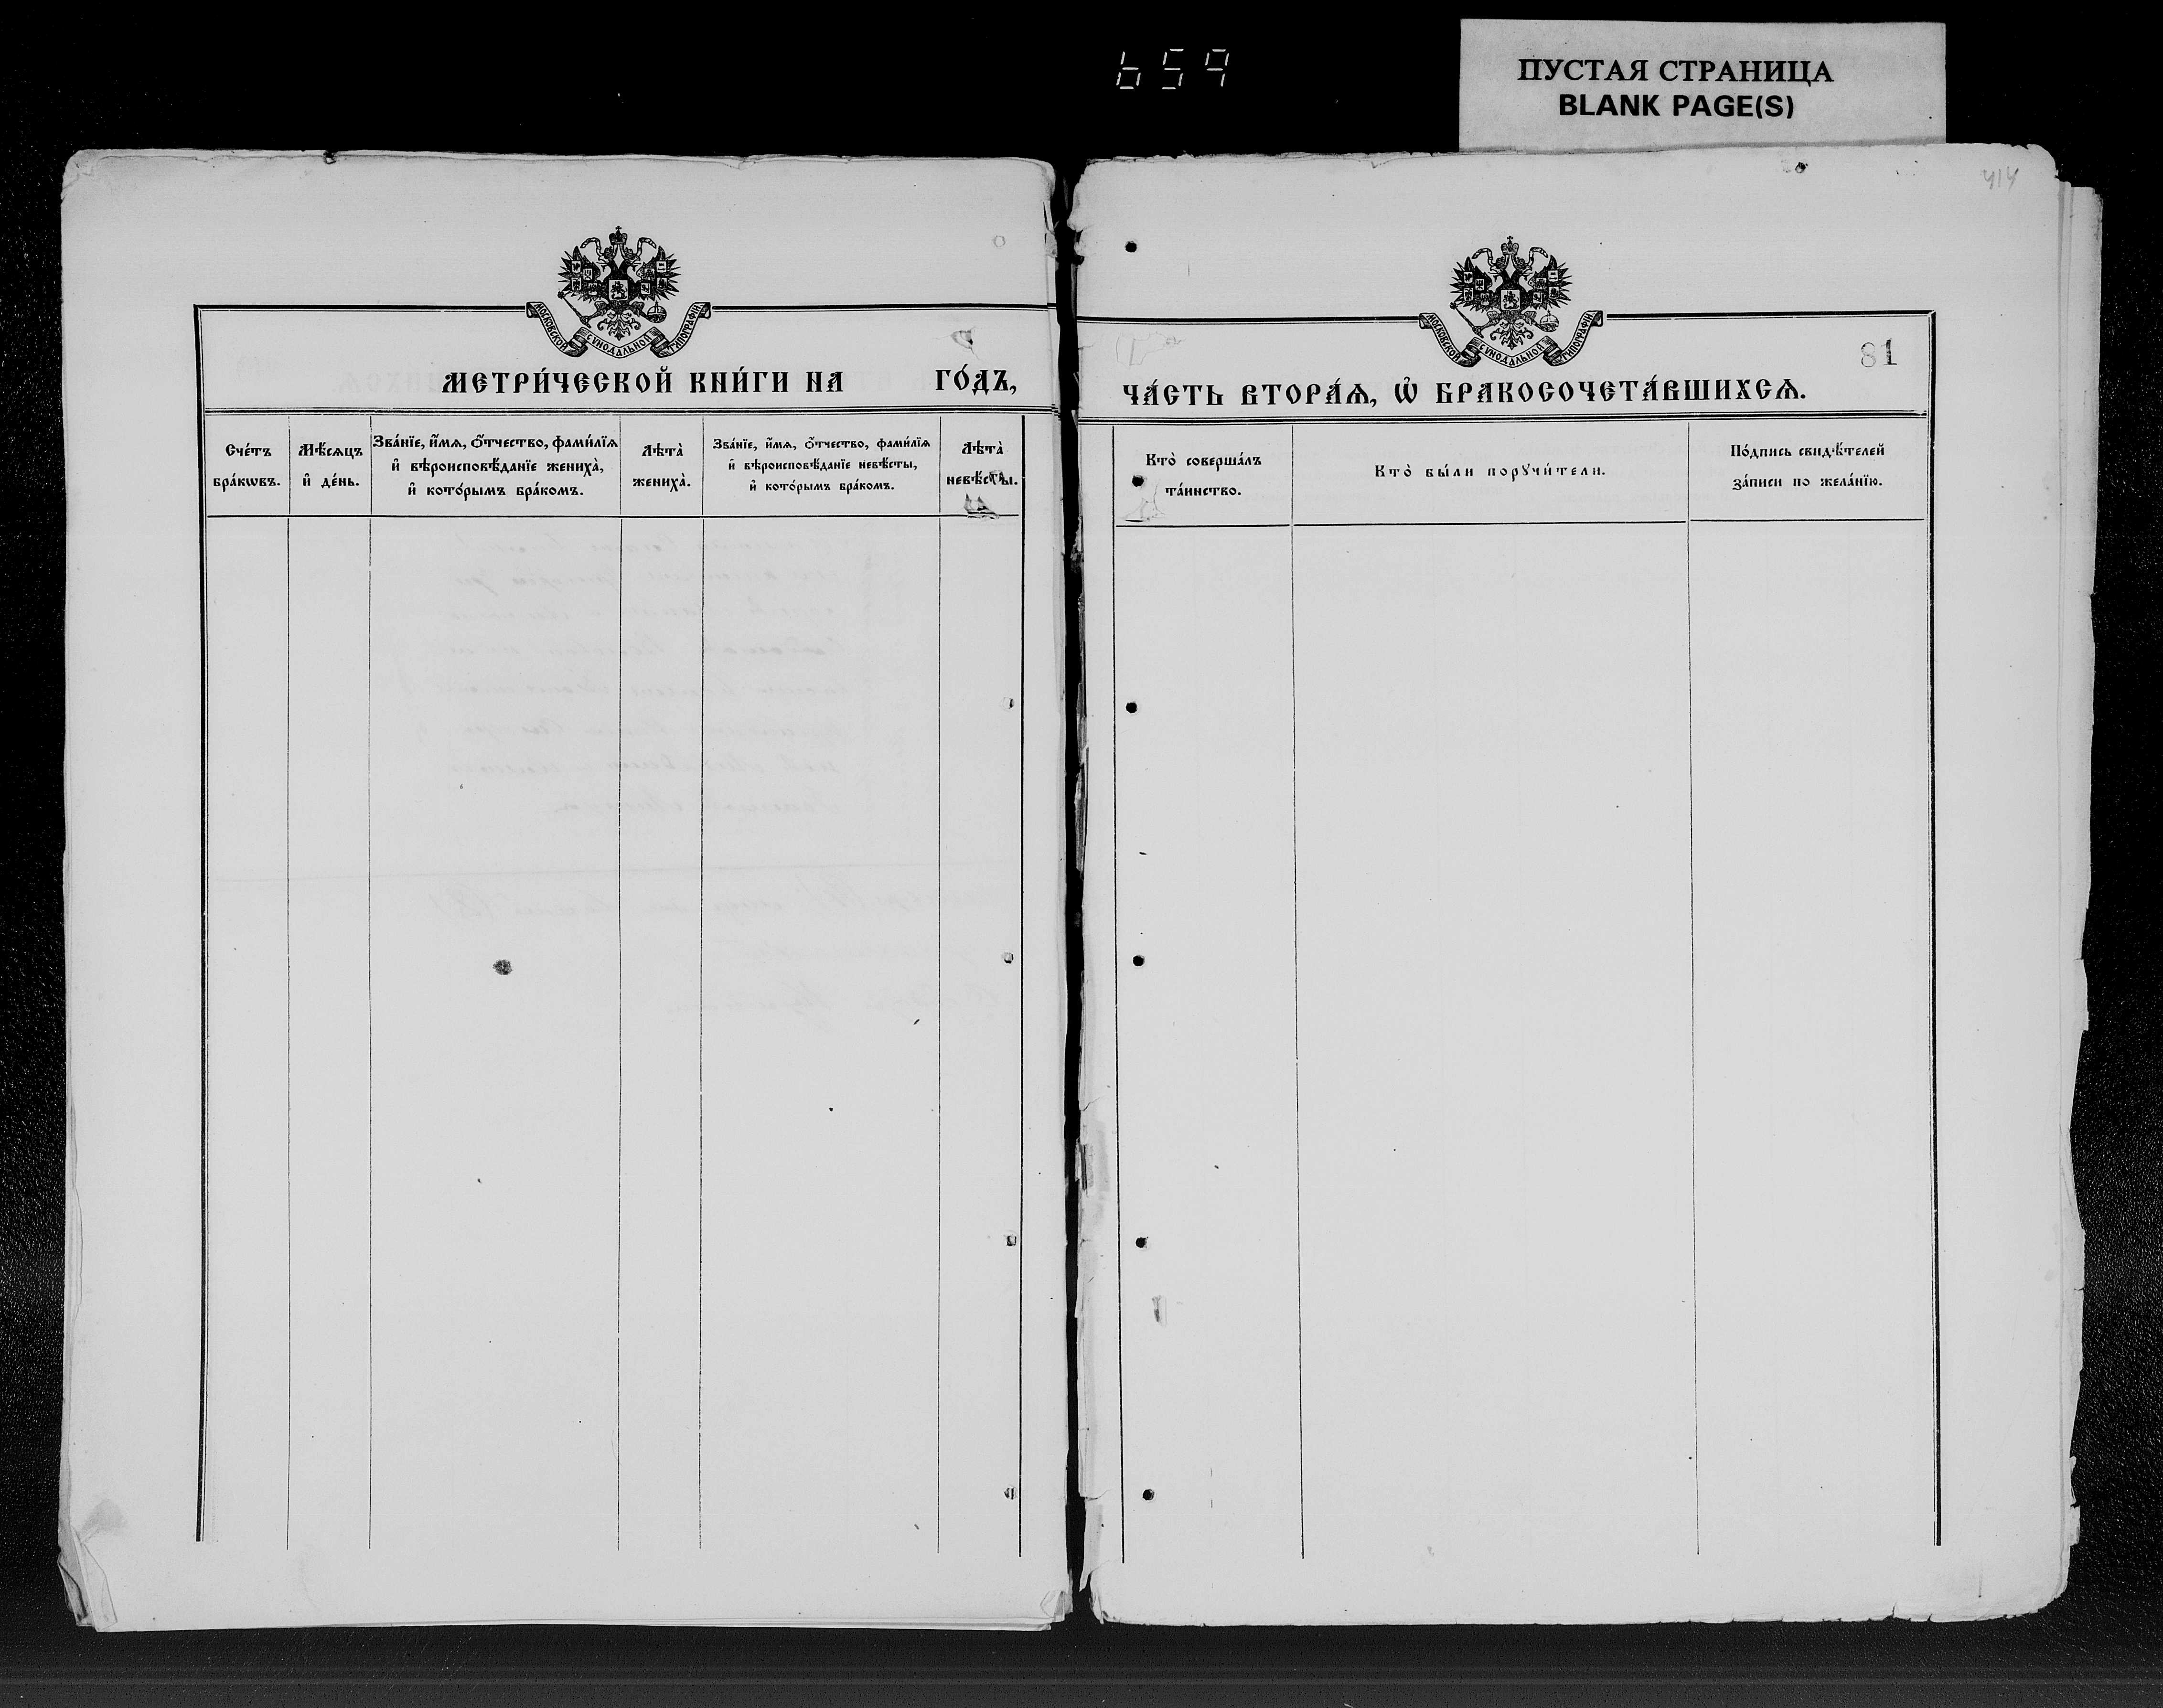 659
ПУСТАЯ СТРАНИЦА
BLANK PAGE(S)
414
МОСКОВСКОЙ СѴНОДАЛЬНОЙ ТИПОГРАФІИ
МЕТРИ́ЧЕСКОЙ КНИ́ГИ НА ГО́ДЪ,
Сче́тъ бра́кѡвъ.
Мѣ́сѧцъ и҆ де́нь.
Зва́нїе, и҆́мѧ, ѻ҆́тчество, фами́лїѧ
и҆ вѣроисповѣ́данїе жениха̀,
и҆ кото́рымъ бра́комъ.
Лѣта̀ жениха̀.
Зва́нїе, и҆́мѧ, ѻ҆́тчество, фами́лїѧ
и҆ вѣроисповѣ́данїе невѣ́сты,
и҆ кото́рымъ бра́комъ.
Лѣта̀ невѣ́сты.
МОСКОВСКОЙ СѴНОДАЛЬНОЙ ТИПОГРАФІИ
81
ЧА́СТЬ ВТОРА́Ѧ, Ѽ БРАКОСОЧЕТА́ВШИХСѦ.
Кто̀ соверша́лъ
та́инство.
Кто̀ бы́ли порꙋчи́тели.
По́дпись свидѣ́телей
за́писи по жела́нїю.